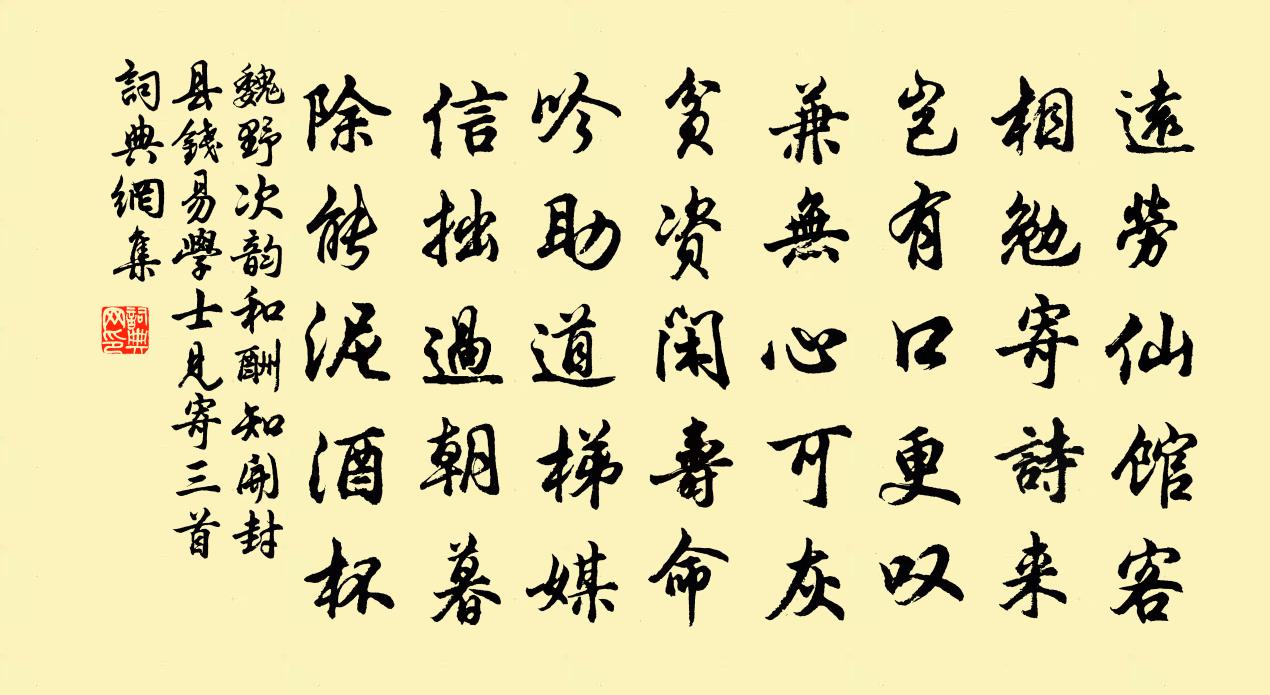 遠勞仙館客
相勉寄詩来
豈有口更叹
兼無心可灰
貧资閑壽命
吟助道梯媒
信拙過朝暮
除能泥酒杯
魏野次韵和酬知開封
县錢易學士見寄三首
詞典網集
詞典网印